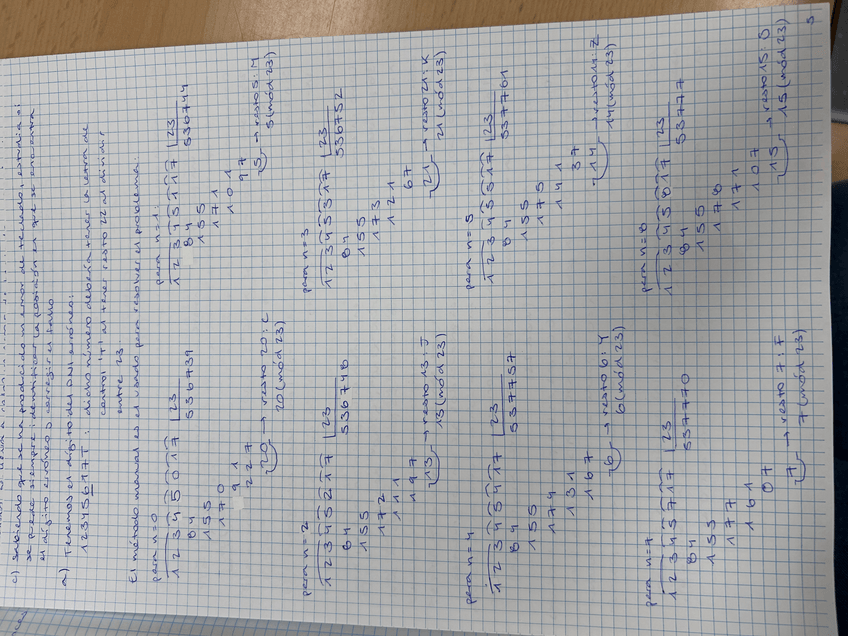 c) Sabiendo que se ha producido un error de tecleado, estudia si
se puede siempre: identificar la posición en que se encuentra
el dígito erróneo o corregir el fallo
a) Tenemos el dígito del DNI erróneo:
12345617T : dicho número debería tener la letra de
control al tener resto 22 al dividir
entre 23
El método manual es el usado para resolver el problema:
para n=0
12345017 |23
84 536739
155
170
91
227
20 → resto 20: C
20 (mód 23)
para n=1:
12345117 |23
84 536744
155
171
101
97
5 → resto 5: M
5 (mód 23)
para n=2
12345217 |23
84 536748
155
172
111
197
13 → resto 13: J
13 (mód 23)
para n=3
12345317 |23
84 536752
155
173
121
67
21 → resto 21: K
21 (mód 23)
para n=4
12345417 |23
84 537757
155
174
131
167
6 → resto 6: Y
6 (mód 23)
para n=5
12345517 |23
84 537761
155
175
141
37
14 → resto 14: Z
14 (mód 23)
para n=7
12345717 |23
84 537770
155
177
161
07
7 → resto 7: F
7 (mód 23)
para n=8
12345817 |23
84 53777
155
178
171
107
15 → resto 15: S
15 (mód 23)
5